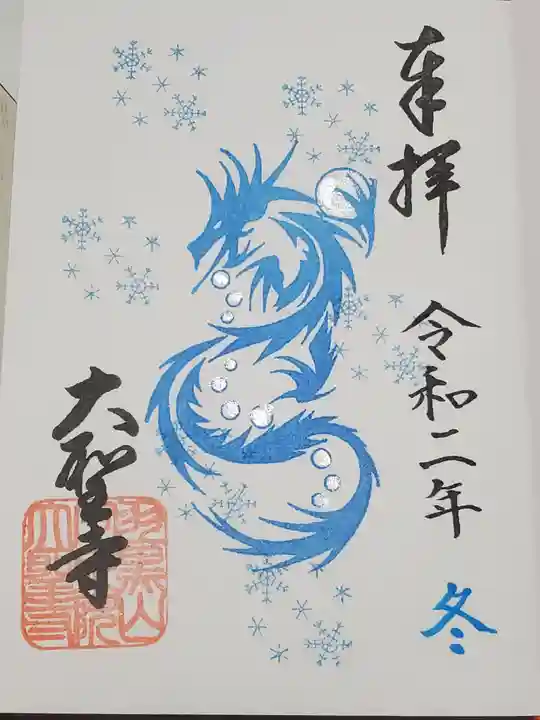 奉拝
令和二年
冬
大聖寺